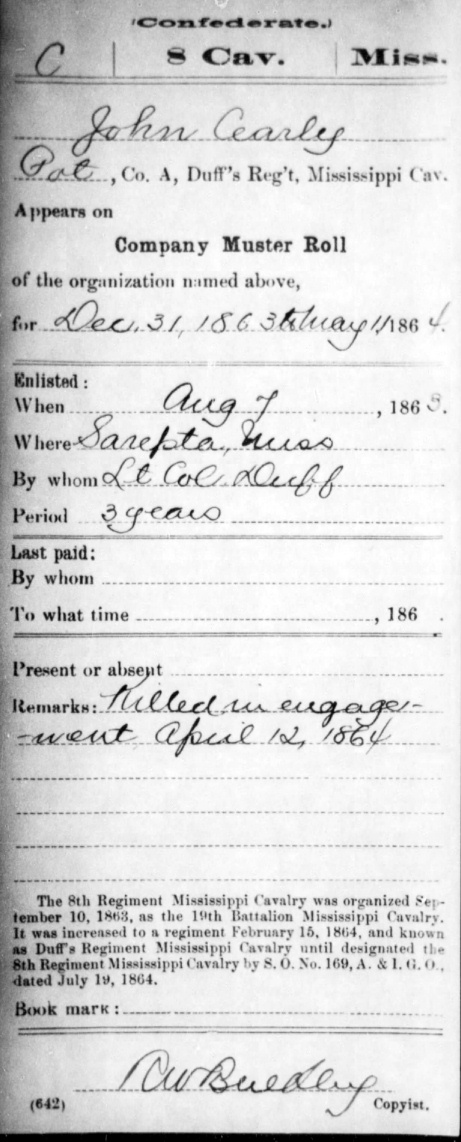 (Confederate.)
C | 8 Cav. | Miss.
John Cearley
Pvt, Co. A, Duff's Reg't, Mississippi Cav.
Appears on
Company Muster Roll
of the organization named above,
for Dec. 31, 1863 to May 1, 1864.
Enlisted:
When Aug 7, 1863.
Where Sarepta, Miss
By whom Lt Col. Duff
Period 3 years
Last paid:
By whom
To what time , 186 .
Present or absent
Remarks: Killed in engage-
-ment April 12, 1864
The 8th Regiment Mississippi Cavalry was organized Sep-
tember 10, 1863, as the 19th Battalion Mississippi Cavalry.
It was increased to a regiment February 15, 1864, and known
as Duff's Regiment Mississippi Cavalry until designated the
8th Regiment Mississippi Cavalry by S. O. No. 169, A. & I. G. O.,
dated July 19, 1864.
Book mark:
(642) Copyist.